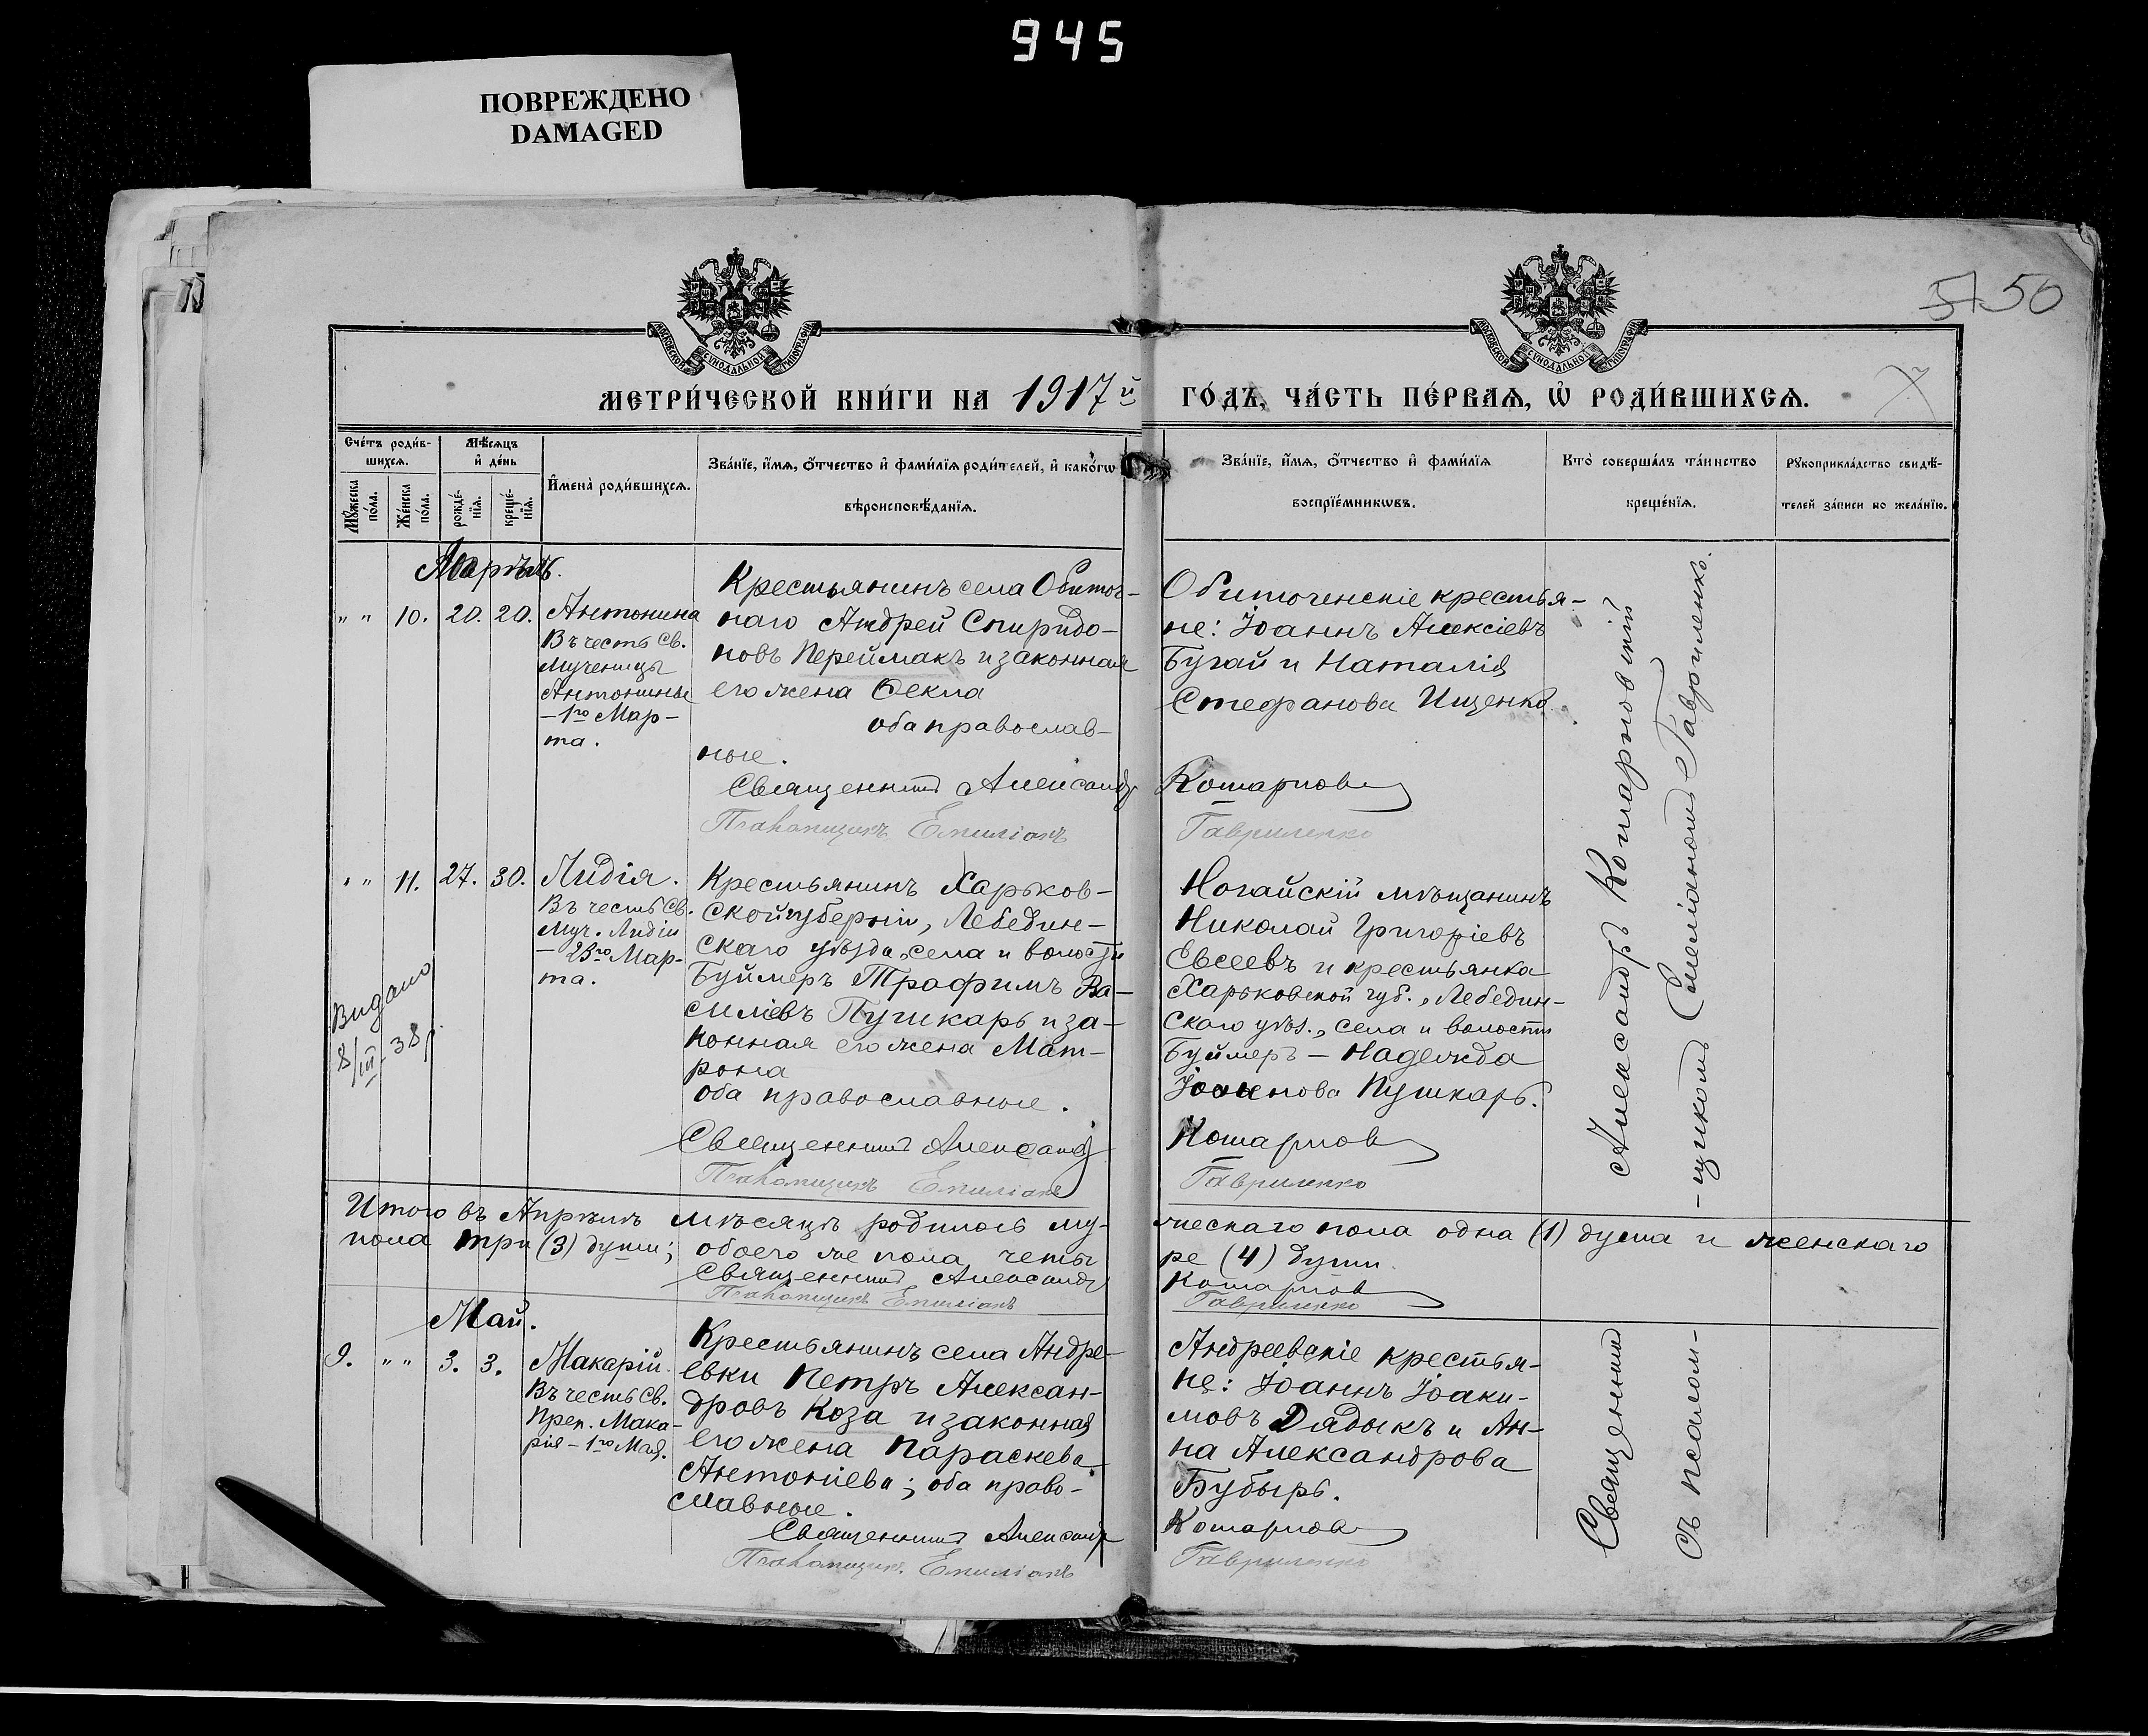 945
ПОВРЕЖДЕНО
DAMAGED
50
МОСКОВСКОЙ СѴНОДАЛЬНОЙ ТИПОГРАФІИ
МОСКОВСКОЙ СѴНОДАЛЬНОЙ ТИПОГРАФІИ
МЕТРИ́ЧЕСКОЙ КНИ́ГИ НА 1917й
ГО́ДЪ, ЧА́СТЬ ПЕ́РВАѦ, Ѡ҆ РОДИ́ВШИХСѦ.
Сче́тъ роди́в-
шихсѧ.
Му́жеска по́ла.
Же́нска по́ла.
Мѣ́сѧцъ
и҆ де́нь
рожде́-
нїѧ.
креще́-
нїѧ.
И҆мена̀ роди́вшихсѧ.
Зва́нїе, и҆́мѧ, ѻ҆́тчество и҆ фами́лїѧ роди́телей, и҆ како́гѡ
вѣроисповѣ́данїѧ.
Зва́нїе, и҆́мѧ, ѻ҆́тчество и҆ фами́лїѧ
воспрїе́мникѡвъ.
Кто̀ соверша́лъ та́инство
креще́нїѧ.
Рꙋкоприкла́дство свидѣ́-
телей за́писи по жела́нїю.
" " 10. 20. 20.
Антонина
Въ честь св.
Мученицы
Антонины
– 1го Мар-
та.
Крестьянинъ села Обиточ-
наго Андрей Спиридо-
новъ Переймакъ и законная
его жена Ѳекла
оба православ-
ные.
Священникъ Александръ
Псаломщикъ Емиліанъ
Обиточенскіе крестья-
не: Іоаннъ Алексіевъ
Бугай и Наталія
Стефанова Ищенко.
Котарнов
Гавриленко
" " 11. 27. 30.
Лидія.
Въ честь св.
Муч. Лидіи
– 23го Мар-
та.
Видано
8/III-38 р.
Крестьянинъ Харьков-
ской губерніи, Лебедин-
скаго уѣзда, села и волости
Буймеръ Трофимъ Ва-
силіевъ Пушкарь и за-
конная его жена Мат-
рона
оба православные.
Священникъ Александръ
Псаломщикъ Емиліанъ
Ногайскій мѣщанинъ
Николай Григоріевъ
Евсеевъ и крестьянка
Харьковской губ., Лебедин-
скаго уѣз., села и волости
Буймеръ – Надежда
Пушкарь.
Котарнов
Гавриленко
Александръ Котарновскій
-щикомъ Емеліаномъ Гавриленко.
Итого въ Апрѣлѣ мѣсяцѣ родилось му-
жескаго пола одна (1) душа и женскаго
пола три (3) души; обоего же пола четы
ре (4) души.
Священникъ Александръ
Котарнов
Псаломщикъ Емиліанъ
Гавриленко
Май.
9. " " 3. 3.
Макарій
Въ честь св.
Преп. Мака-
рія – 1го Мая.
Крестьянинъ села Андре-
евки Петръ Алексан-
дровъ Коза и законная
его жена Параскева
Антоніева; оба право-
славные.
Священникъ Александръ
Псаломщикъ Емиліанъ
Андреевскіе крестья-
не: Іоаннъ Іоаки-
мовъ Дядыкъ и Ан-
на Александрова
Бубырь.
Котарнов
Гавриленко
Священникъ
съ псалом-